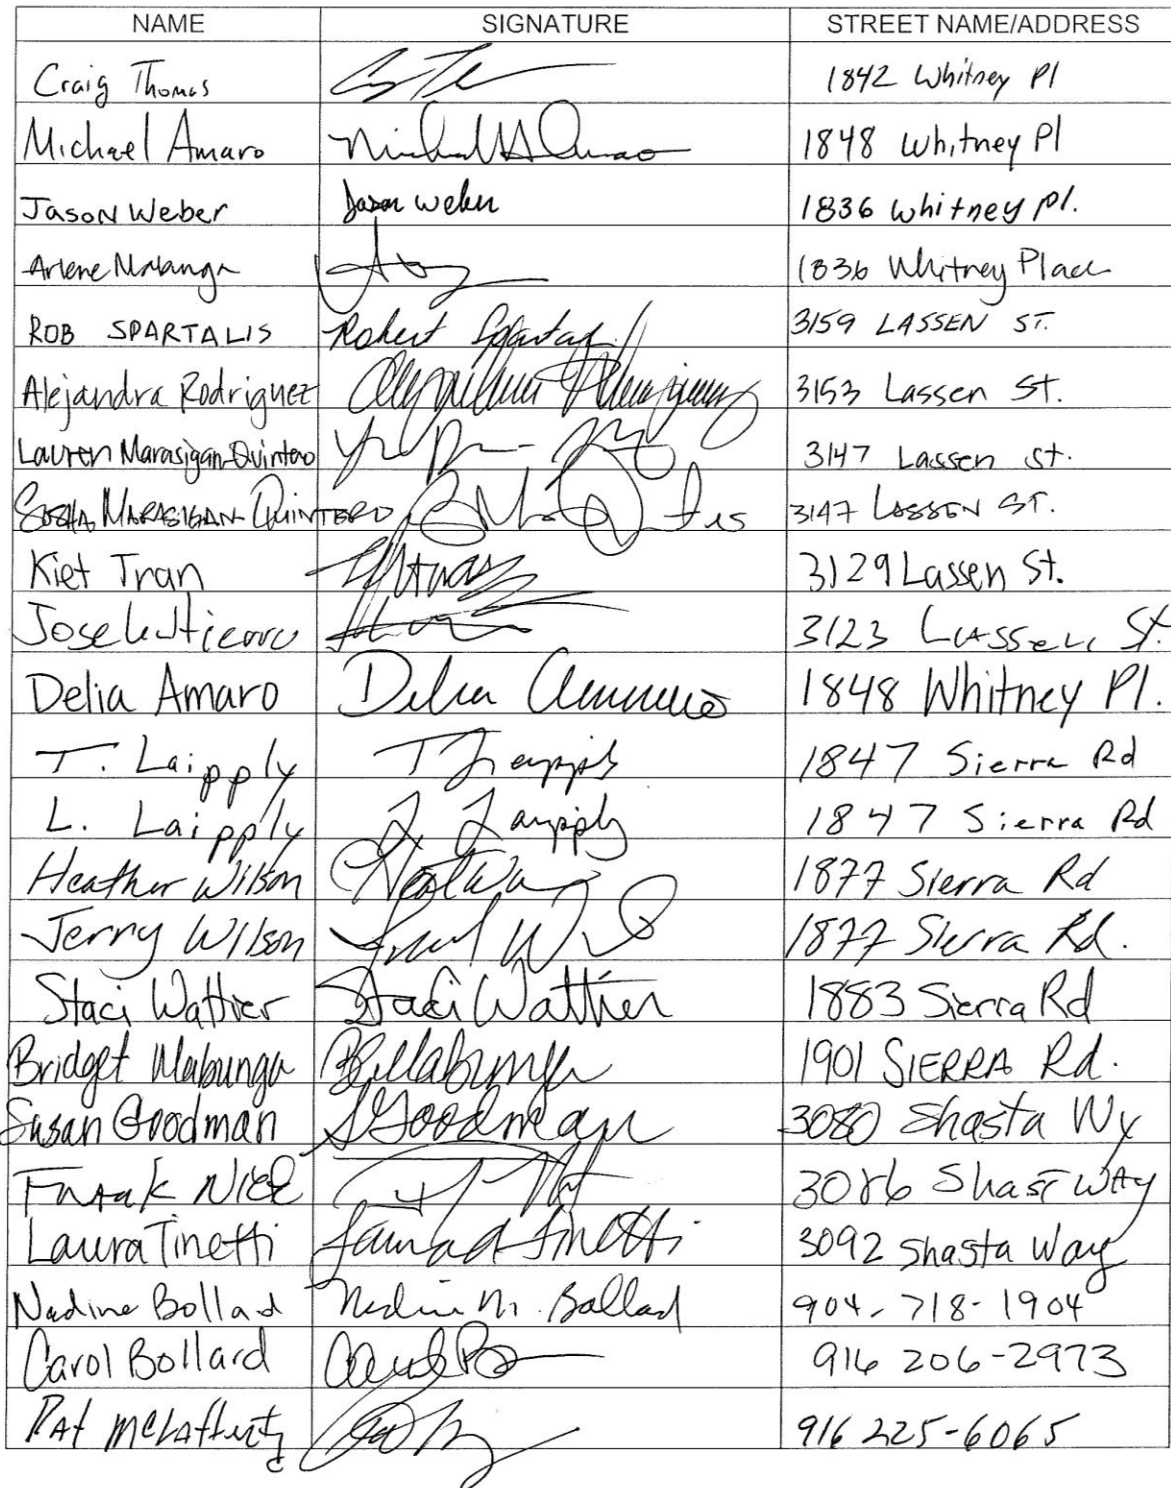 NAME SIGNATURE STREET NAME/ADDRESS
Craig Thomas 1842 Whitney Pl
Michael Amaro 1848 Whitney Pl
Jason Weber Jason Weber 1836 Whitney Pl.
Arlene Mabunga 1836 Whitney Place
ROB SPARTALIS Robert 3159 LASSEN ST.
Alejandra Rodriguez 3153 Lassen St.
Lauren Marasigan-Quintero 3147 Lassen St.
MARASIGAN QUINTERO 3147 LASSEN ST.
Kiet Tran 3129 Lassen St.
Jose 3123 Lassen St.
Delia Amaro Delia Amaro 1848 Whitney Pl.
T. Laipply T Laipply 1847 Sierra Rd
L. Laipply L Laipply 1847 Sierra Rd
Heather Wilson 1877 Sierra Rd
Jerry Wilson 1877 Sierra Rd.
Staci Wattier Staci Wattier 1883 Sierra Rd
Bridget Mabunga BMabunga 1901 SIERRA Rd.
Susan Goodman SGoodman 3080 Shasta Wy
Frank 3086 Shast WAy
Laura Tinetti Laura Tinetti 3092 Shasta Way
Nadine Bollard Nadine M. Bollard 904-718-1904
Carol Bollard 916 206-2973
PAt McLafferty 916 225-6065